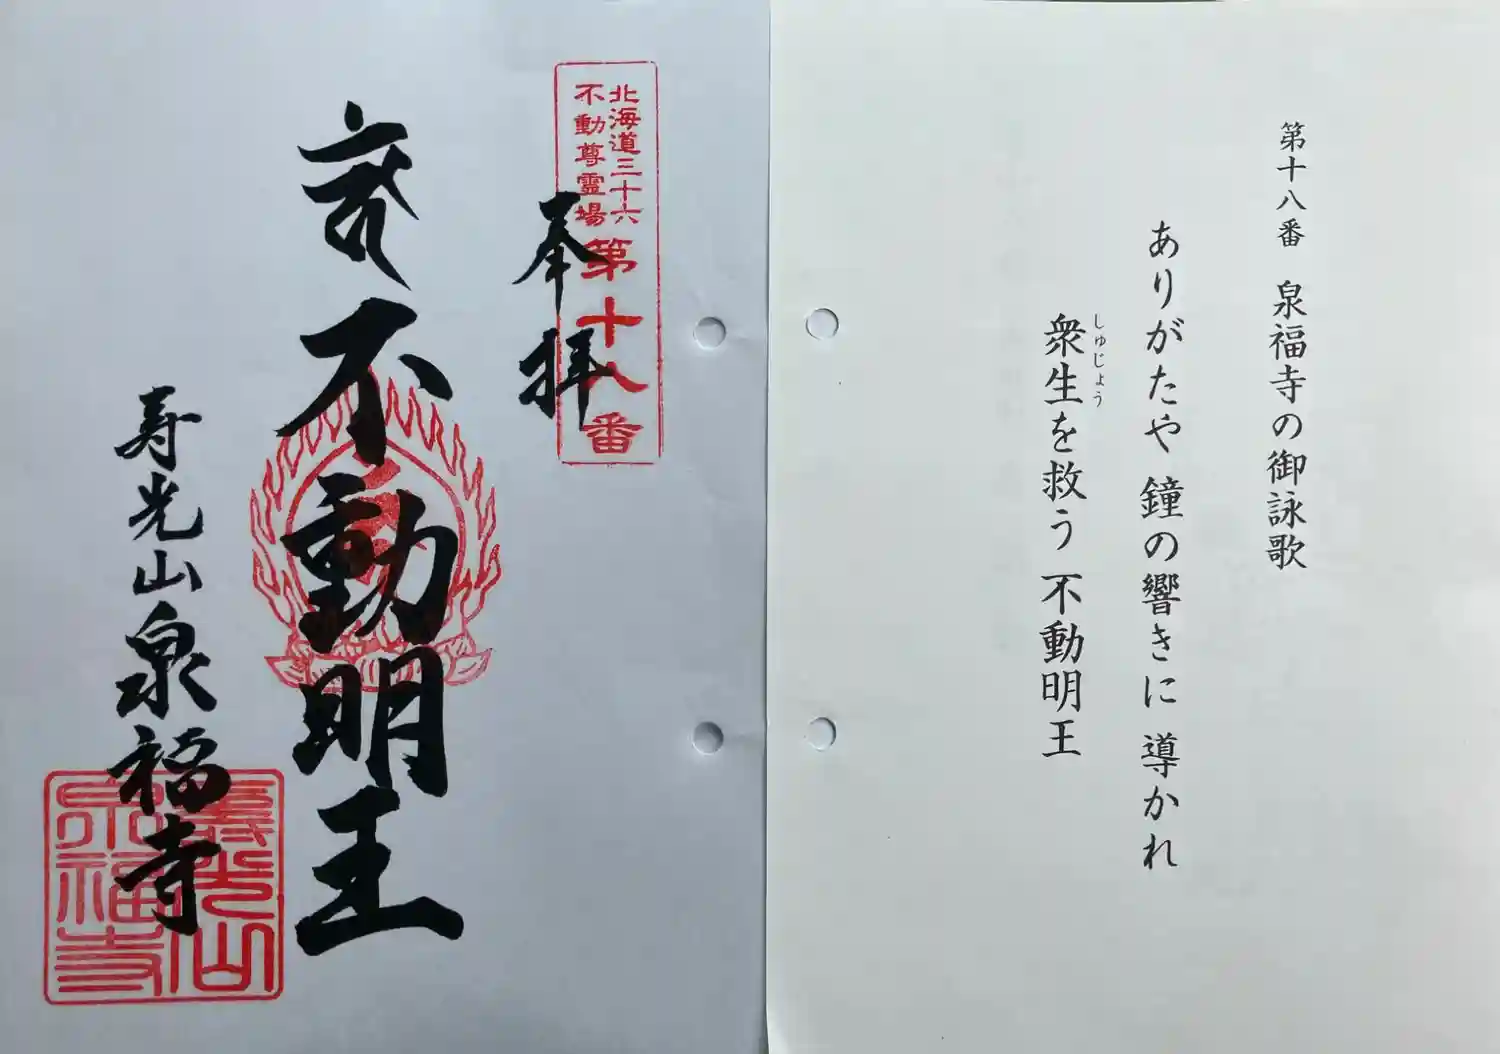 第十八番 泉福寺の御詠歌
ありがたや 鐘の響きに 導かれ
しゅじょう
衆生を救う 不動明王
北海道三十六
不動尊霊場
第十八番
奉拝
不動明王
寿光山泉福寺
壽光山
泉福寺